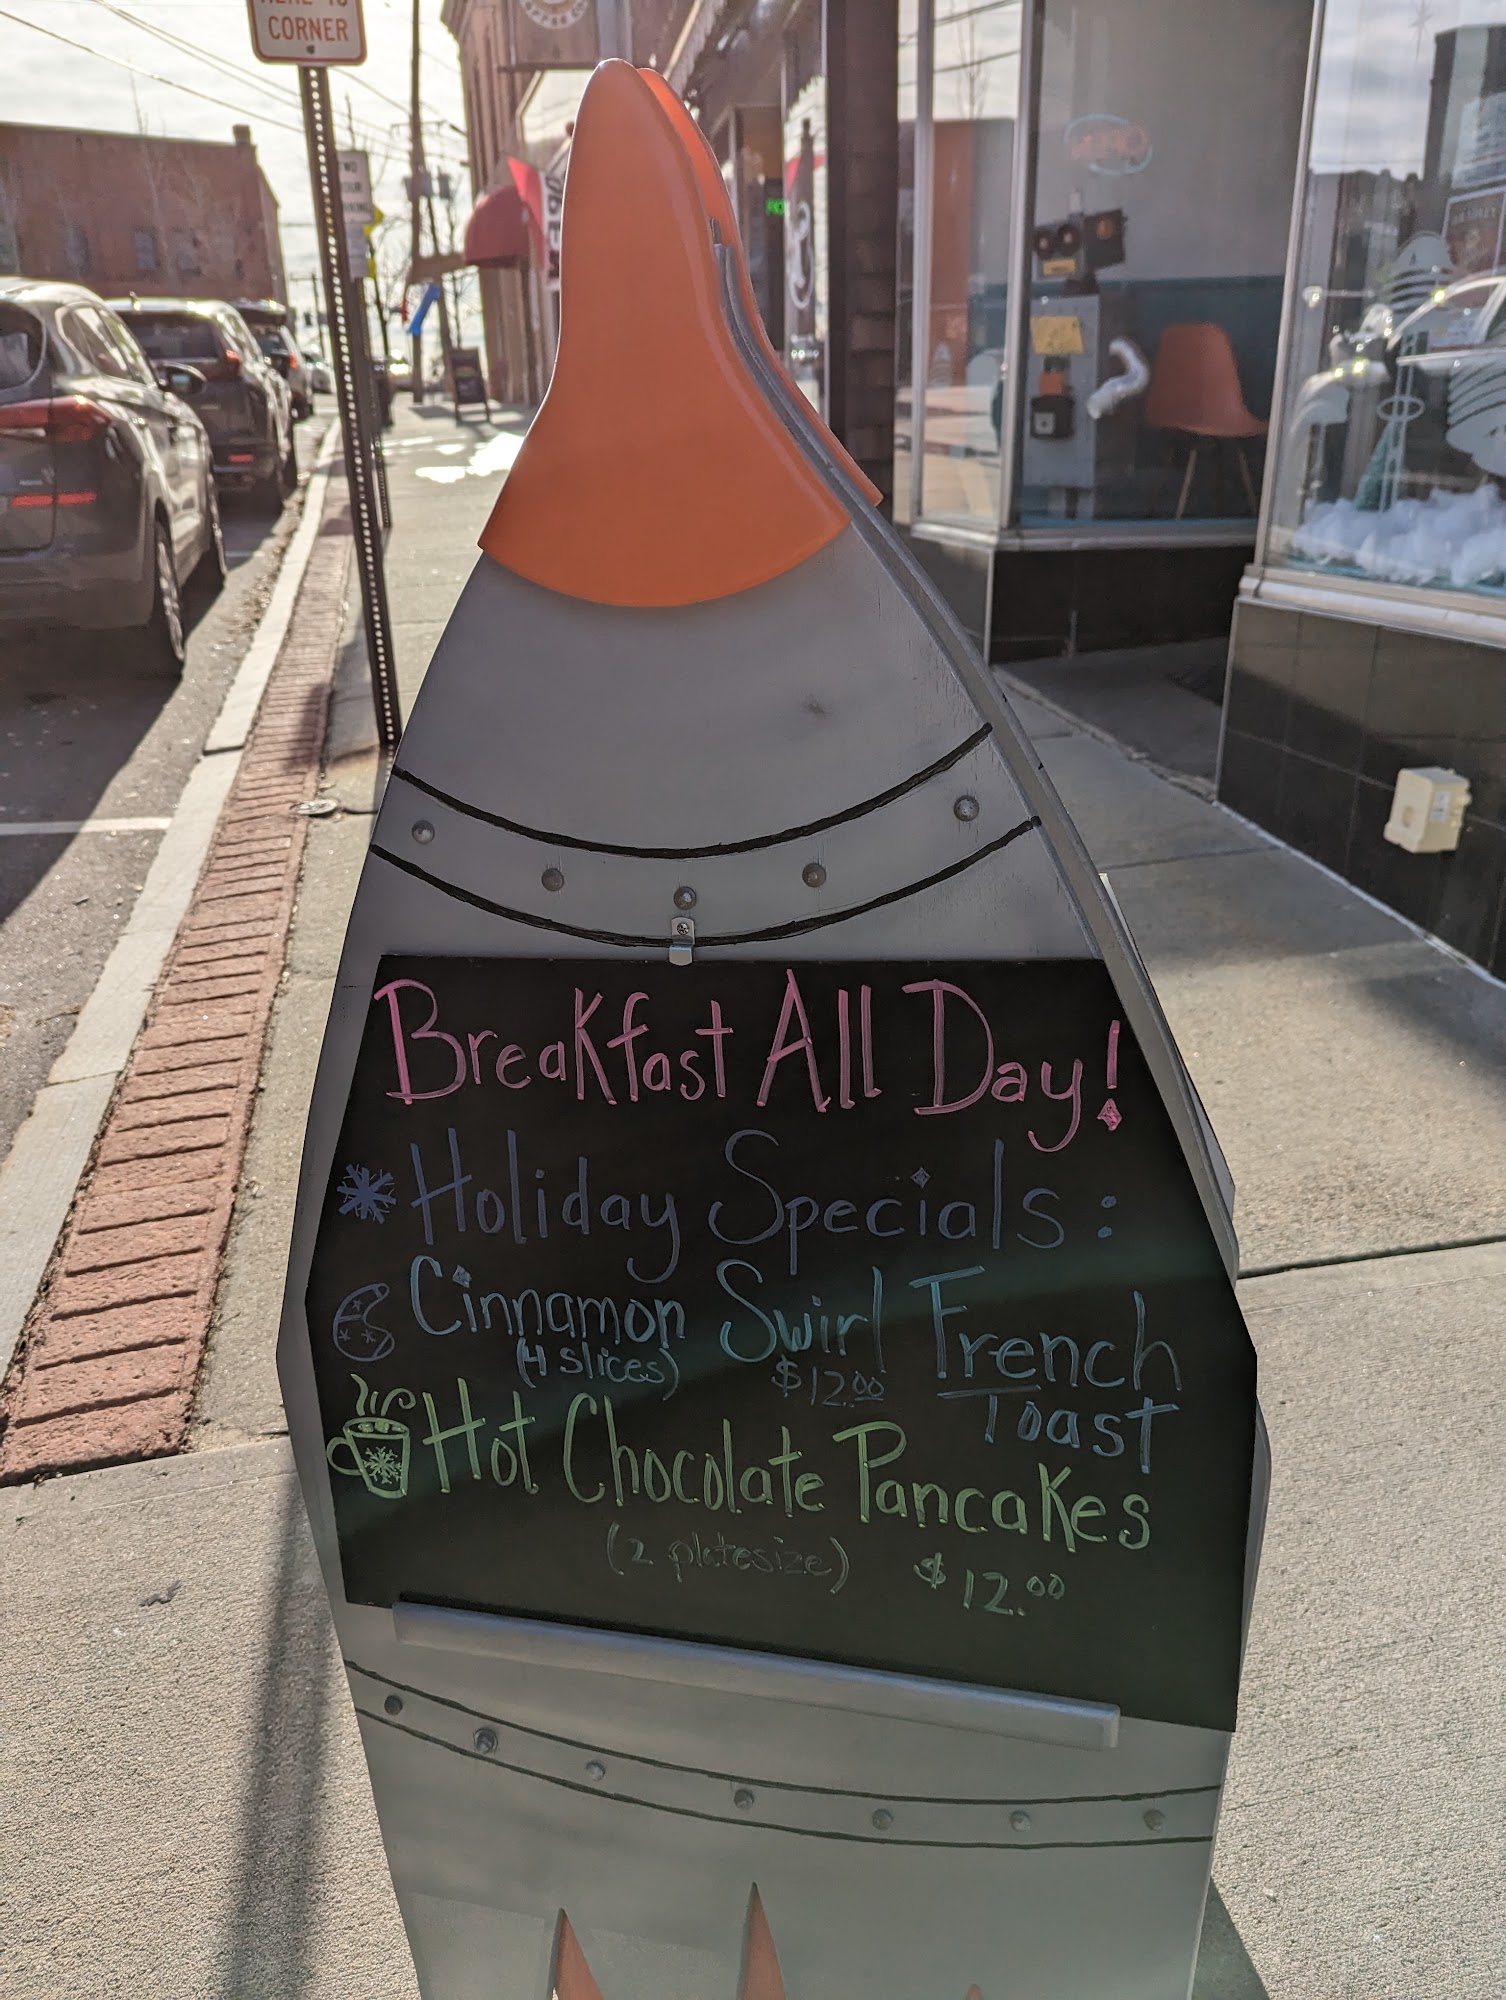 HERE TO
CORNER
COFFEE CO
NO
OUR
OPEN
Breakfast All Day!
Holiday Specials:
Cinnamon Swirl French
Toast
(4 slices) $12.00
Hot Chocolate Pancakes
(2 platesize) $12.00